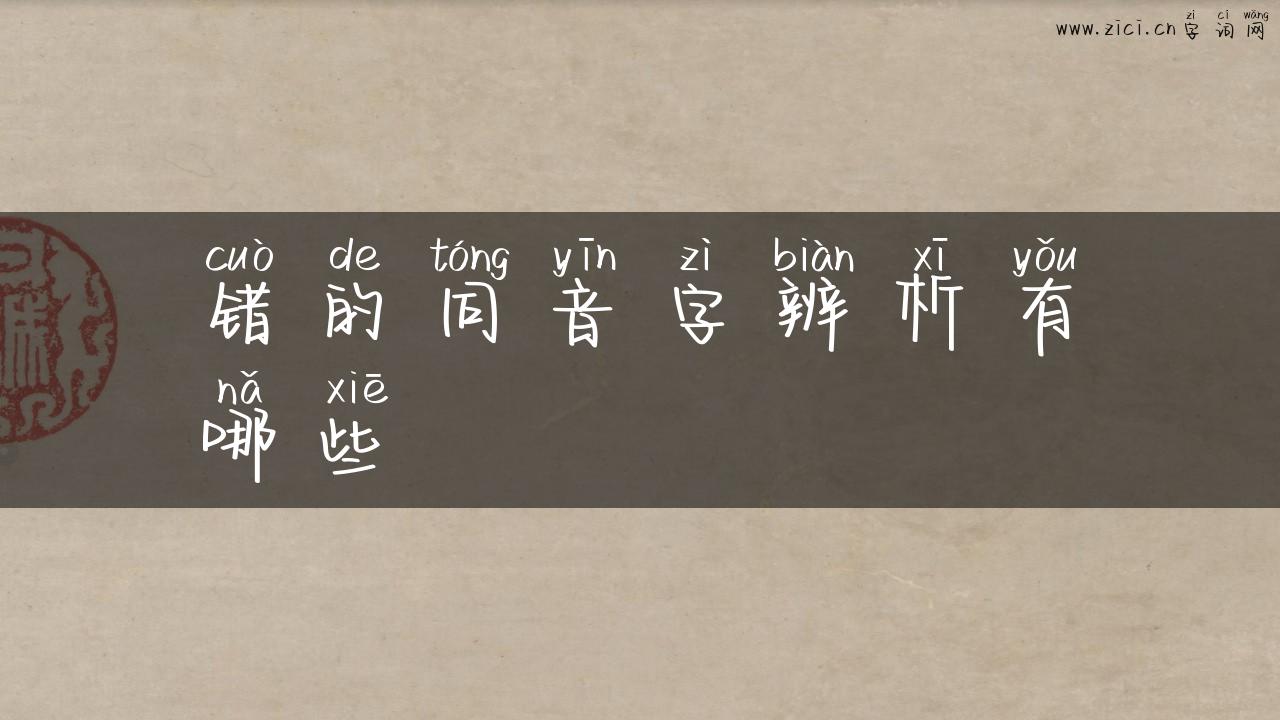 zì cí wǎng
www.zici.cn 字词网
cuò de tóng yīn zì biàn xī yǒu
错的同音字辨析有
nǎ xiē
哪些